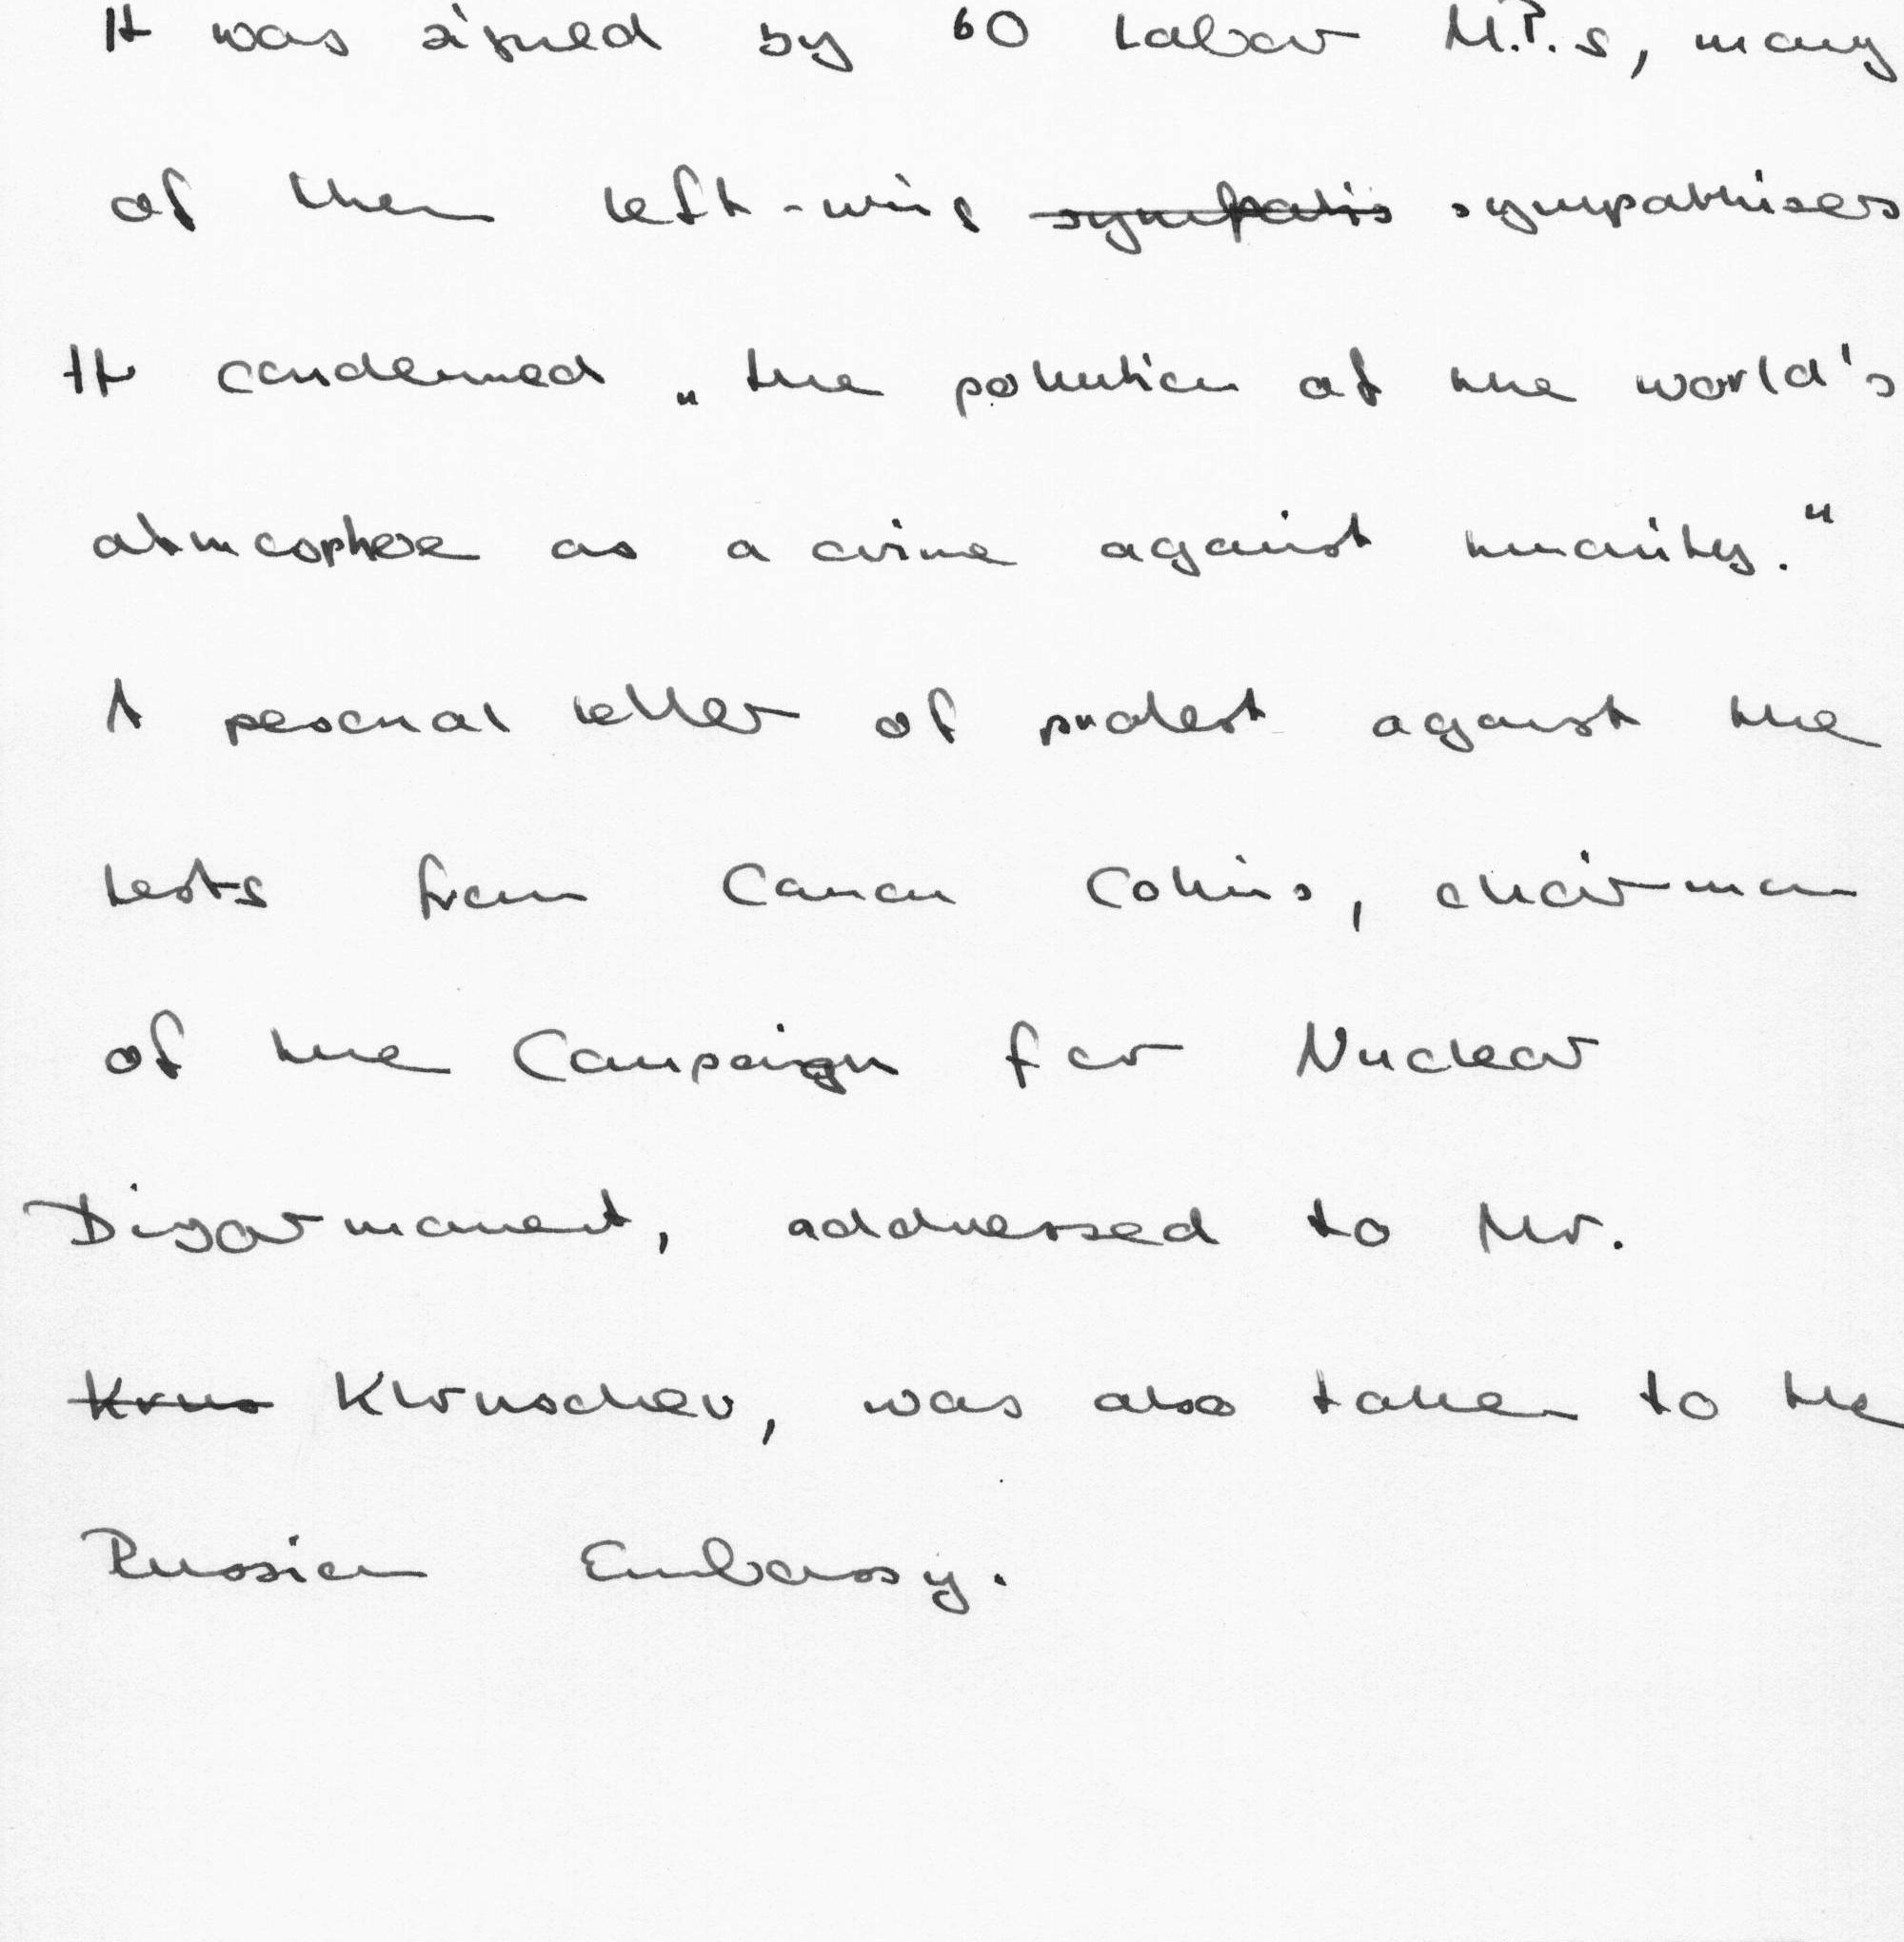 It was signed by 60 Labour M.P.s, many
of them left-wing sympatis sympathisers
It condemned „the pollution of the world's
atmosphere as a crime against humanity."
A personal letter of protest against the
tests from Canon Collins, chairman
of the Campaign for Nuclear
Disarmament, addressed to Mr.
Krus Khruschev, was also taken to the
Russian Embassy.